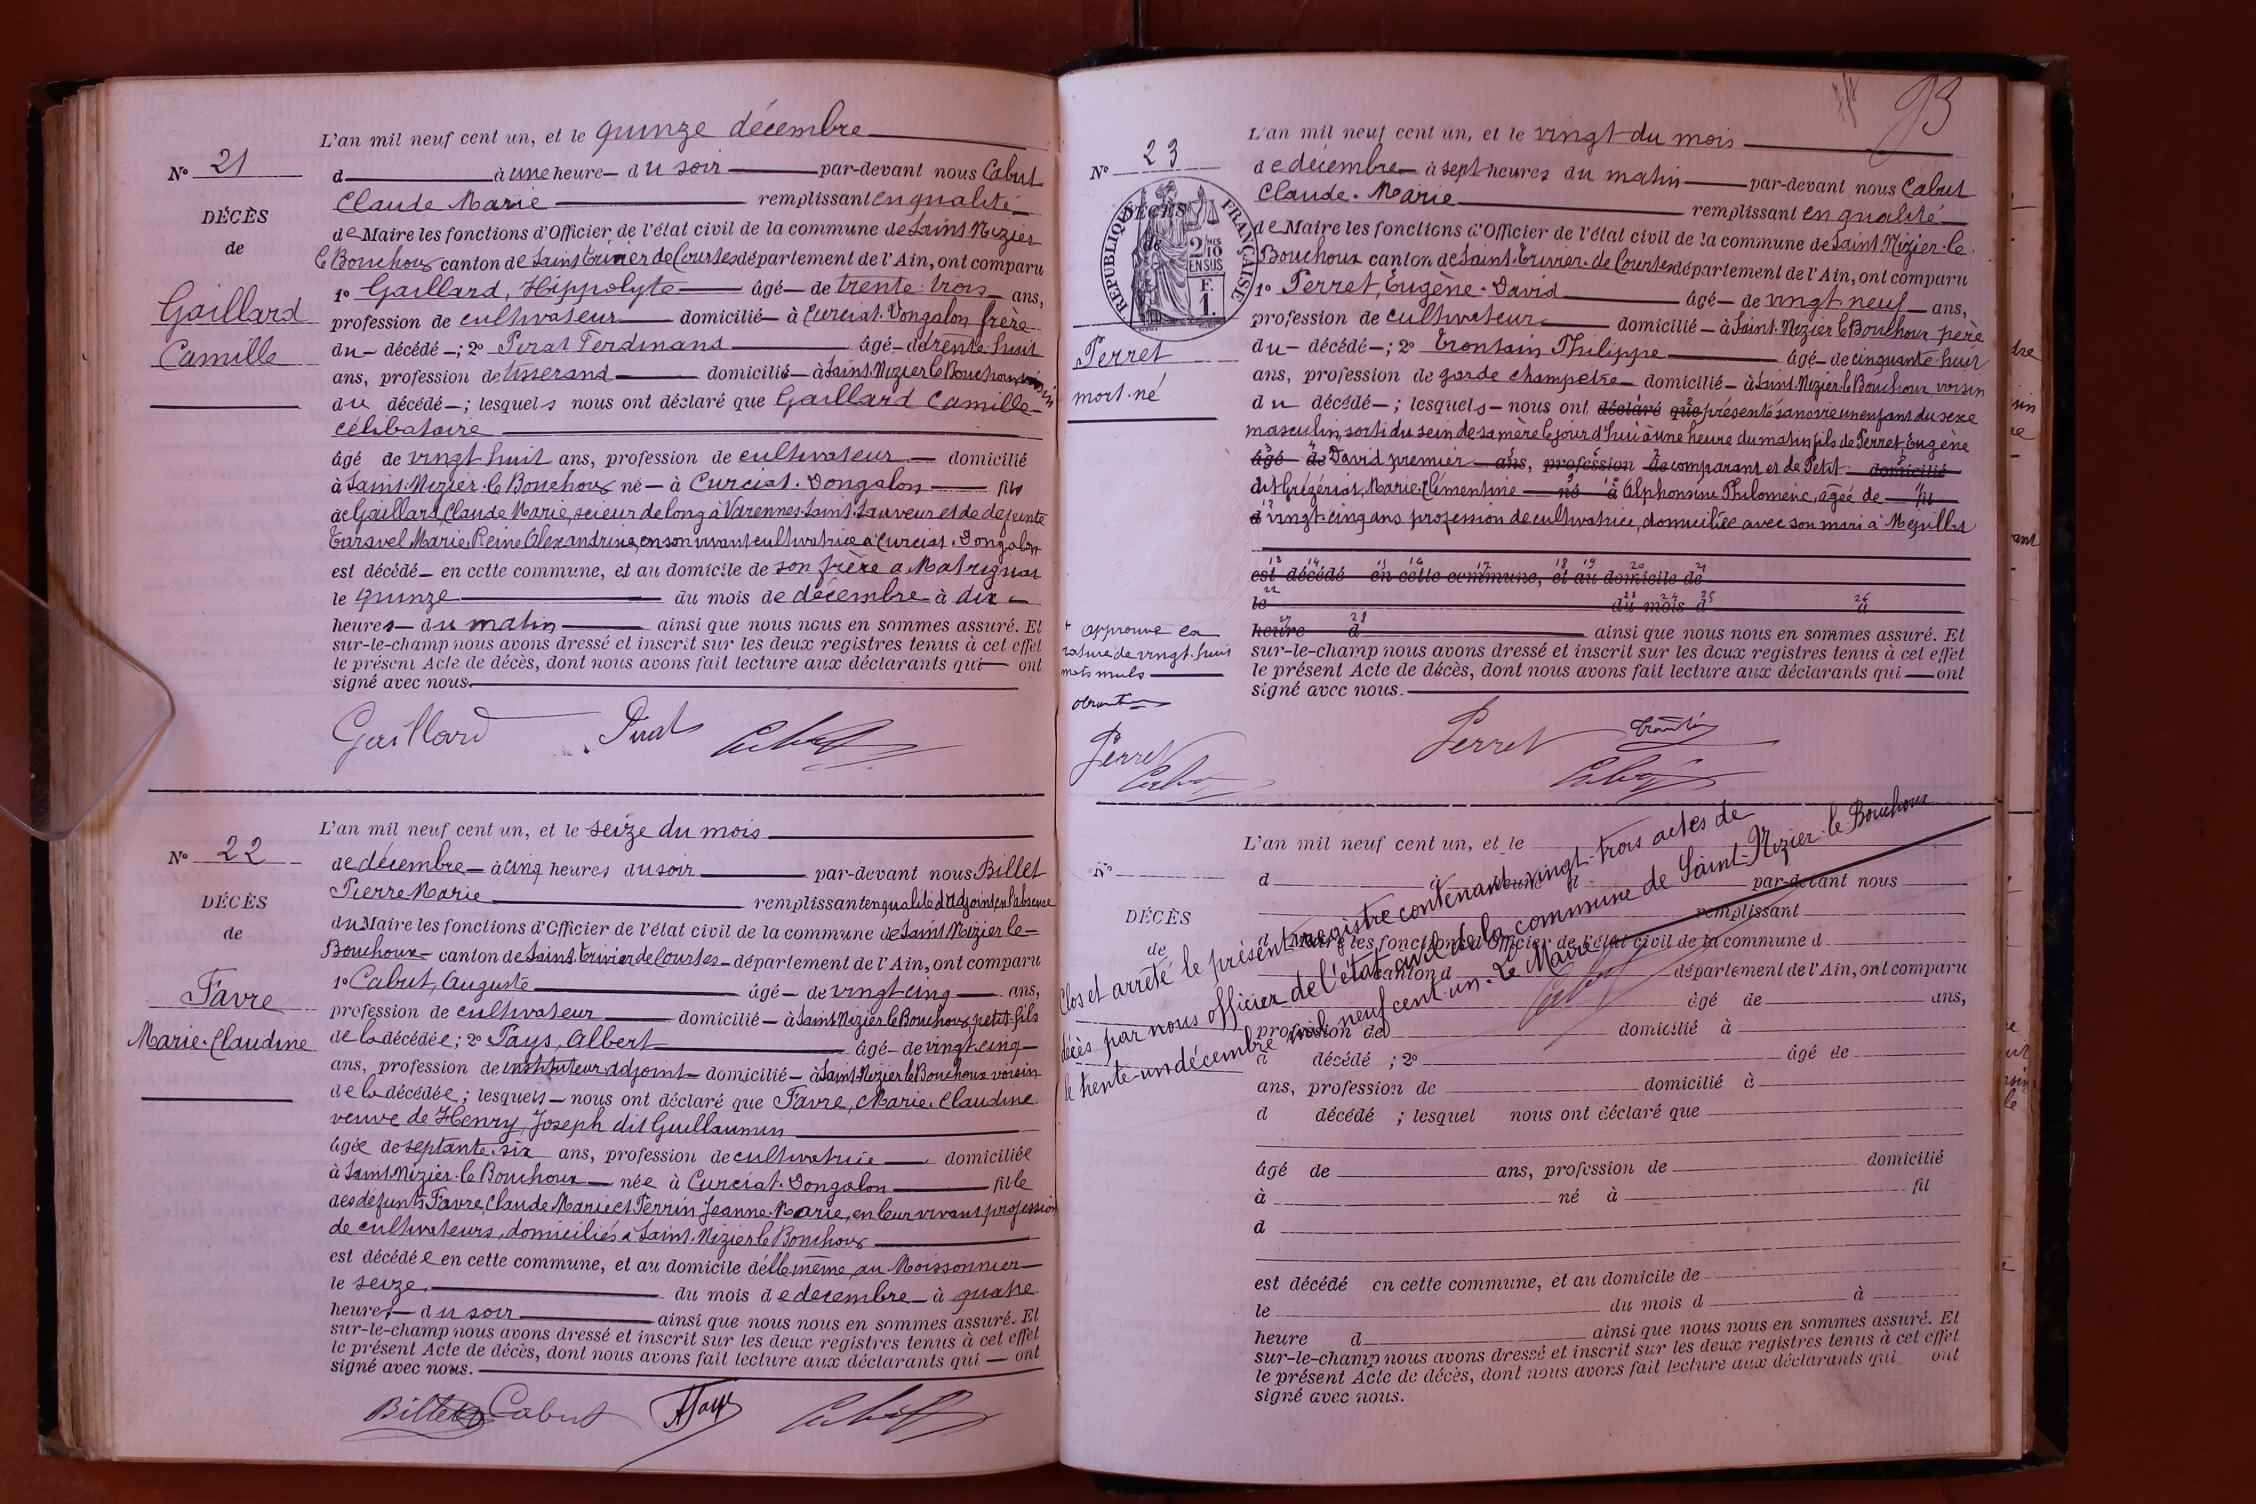 L'an mil neuf cent un, et le quinze décembre
N° 21
d à une heure du soir par-devant nous Cabut
Claude Marie remplissant en qualité
DÉCÈS
de Maire les fonctions d'Officier de l'état civil de la commune de Saint Nizier
de
le Bouchoux canton de Saint Trivier de Courtes département de l'Ain, ont comparu
Gaillard
Camille
1° Gaillard, Hippolyte âgé de trente trois ans,
profession de cultivateur domicilié à Curciat-Dongalon frère
du décédé ; 2° Pirat Ferdinand âgé de trente huit
ans, profession de tisserand domicilié à Saint-Nizier le Bouchoux voisin
du décédé ; lesquels nous ont déclaré que Gaillard Camille
célibataire
âgé de vingt huit ans, profession de cultivateur domicilié
à Saint-Nizier-le Bouchoux né à Curciat-Dongalon fils
de Gaillard, Claude Marie, scieur de long à Varennes-Saint-Sauveur et de defeinte
Taravel Marie Reine Alexandrine, en son vivant cultivatrice à Curciat-Dongalon
est décédé en cette commune, et au domicile de son frère à Matrignat
le quinze du mois de décembre à dix
heures du matin ainsi que nous nous en sommes assuré. Et
sur-le-champ nous avons dressé et inscrit sur les deux registres tenus à cet effet
le présent Acte de décès, dont nous avons fait lecture aux déclarants qui ont
signé avec nous.
Gaillard Pirat Cabut
L'an mil neuf cent un, et le seize du mois
N° 22
de décembre à cinq heures du soir par-devant nous Billet
Pierre Marie remplissant en qualité d'adjoint, en l'absence
DÉCÈS
du Maire les fonctions d'Officier de l'état civil de la commune de Saint Nizier le
de
Bouchoux canton de Saint Trivier de Courtes département de l'Ain, ont comparu
Favre
Marie-Claudine
1° Cabut, Auguste âgé de vingt cinq ans,
profession de cultivateur domicilié à Saint Nizier le Bouchoux petit-fils
de la décédée ; 2° Pays, Albert âgé de vingt-cinq
ans, profession de instituteur adjoint domicilié à Saint-Nizier le Bouchoux voisin
de la décédée ; lesquels nous ont déclaré que Favre, Marie-Claudine
veuve de Henry, Joseph dit Guillaumin
âgée de septante-six ans, profession de cultivatrice domiciliée
à Saint-Nizier-le Bouchoux née à Curciat-Dongalon fille
des défunts Favre, Claude Marie et Perrin Jeanne-Marie, en leur vivant profession
de cultivateurs, domiciliés à Saint-Nizier le Bouchoux
est décédée en cette commune, et au domicile d'elle même au Moissonnier
le seize du mois de décembre à quatre
heures du soir ainsi que nous nous en sommes assuré. Et
sur-le-champ nous avons dressé et inscrit sur les deux registres tenus à cet effet
le présent Acte de décès, dont nous avons fait lecture aux déclarants qui ont
signé avec nous.
Billet Cabut APays Cabut
93
L'an mil neuf cent un, et le vingt du mois
N° 23
de décembre à sept heures du matin par-devant nous Cabut
Claude-Marie remplissant en qualité
DÉCÈS
de
RÉPUBLIQUE FRANÇAISE
2/10 EN SUS
F. 1.
de Maire les fonctions d'Officier de l'état civil de la commune de Saint-Nizier-le
Bouchoux canton de Saint-Trivier-de Courtes département de l'Ain, ont comparu
1° Perret, Eugène-David âgé de vingt-neuf ans,
profession de cultivateur domicilié à Saint-Nizier le Bouchoux père
Perret
mort-né
du décédé ; 2° Trontain Philippe âgé de cinquante-huit
ans, profession de garde champêtre domicilié à Saint-Nizier-le Bouchoux voisin
du décédé ; lesquels nous ont déclaré que présenté sans vie un enfant du sexe
masculin, sorti du sein de sa mère le jour d'hui à une heure du matin fils de Perret, Eugène
âgé de David premier ans, profession de comparant et de Petit domicilié
dit Grézériat, Marie, Clémentine né à Alphonsine Philomène, âgée de fil
d vingt-cinq ans profession de cultivatrice, domiciliée avec son mari à Mépillat
est décédé en cette commune, et au domicile de
le du mois d à
heure d ainsi que nous nous en sommes assuré. Et
sur-le-champ nous avons dressé et inscrit sur les deux registres tenus à cet effet
le présent Acte de décès, dont nous avons fait lecture aux déclarants qui ont
signé avec nous.
+ approuvé la
rature de vingt-huit
mots nuls
Perret
Cabut
Perret Trontin
Cabut
L'an mil neuf cent un, et le
N°
d à heure d par-devant nous
remplissant
DÉCÈS
de
d Maire les fonctions d'Officier de l'état civil de la commune d
canton d département de l'Ain, ont comparu
âgé de ans,
profession de domicilié à
d décédé ; 2° âgé de
ans, profession de domicilié à
d décédé ; lesquel nous ont déclaré que
âgé de ans, profession de domicilié
à né à fil
d
est décédé en cette commune, et au domicile de
le du mois d à
heure d ainsi que nous nous en sommes assuré. Et
sur-le-champ nous avons dressé et inscrit sur les deux registres tenus à cet effet
le présent Acte de décès, dont nous avons fait lecture aux déclarants qui ont
signé avec nous.
Clos et arrêté le présent registre contenant vingt-trois actes de
décès par nous officier de l'état civil de la commune de Saint-Nizier-le Bouchoux
le trente-un décembre mil neuf cent-un. Le Maire